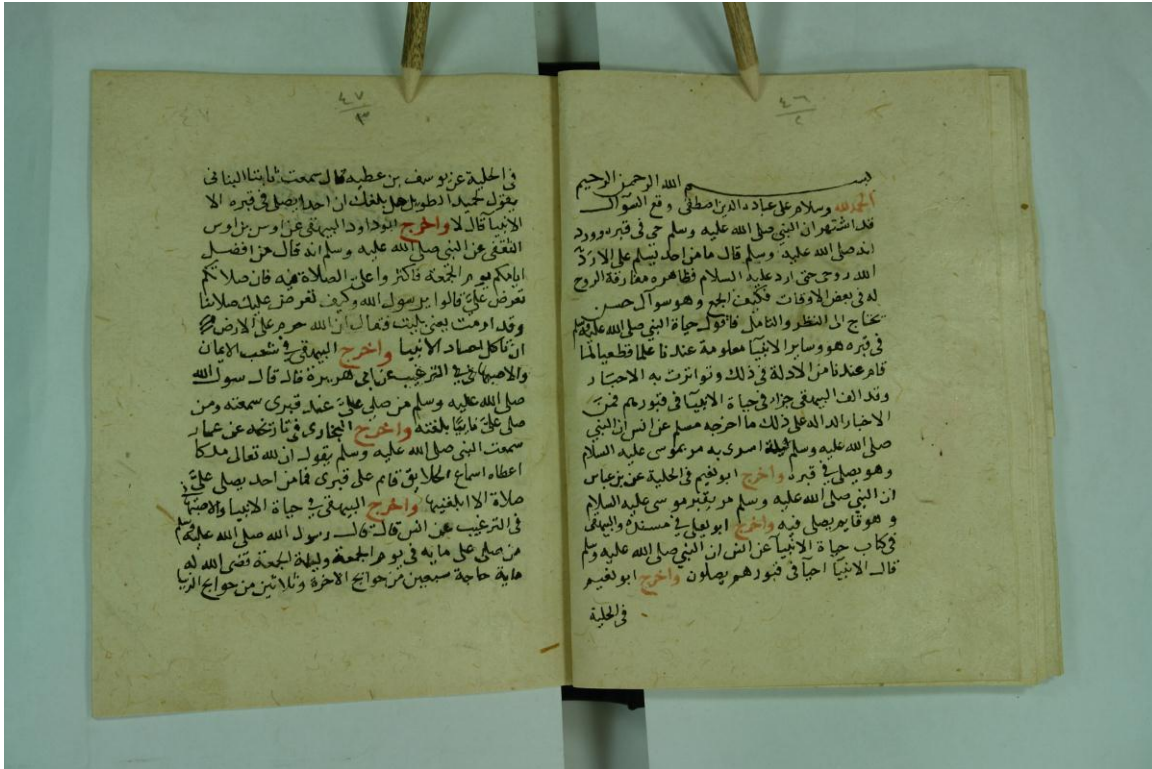 ٤٦
٢
بسم الله الرحمن الرحيم
الحمد لله وسلام على عباده الذين اصطفى وقع السوآل
قد اشتهر ان النبي صلى الله عليه وسلم حي في قبره وورد
انه صلى الله عليه وسلم قال ما من احد يسلم على الا ردّ
الله روحى حتى ارد عليه السلام فظاهره مفارقة الروح
له في بعض الاوقات فكيف الجمع وهو سوآل حسن
يحتاج الى النظر والتامل فاقول حياة النبي صلى الله عليه وسلم
في قبره هو وساير الانبيآ معلومة عندنا علما قطعيا لما
قام عندنا من الادلة في ذلك وتواترت به الاخبار
وقد الف البيهقي جزاء في حياة الانبيآ في قبورهم فمن
الاخبار الداله على ذلك ما اخرجه مسلم عن انس ان النبي
صلى الله عليه وسلم ليلة اسرى به مر بموسى عليه السلام
وهو يصلى في قبره واخرج ابو نعيم في الحلية عن بن عباس
ان النبي صلى الله عليه وسلم مر بقبر موسى عليه السلام
وهو قايم يصلى فيه واخرج ابو يعلى في مسنده والبيهقى
في كتاب حياة الانبيآ عن انس ان النبي صلى الله عليه وسلم
قال الانبيآ احيآ في قبورهم يصلون واخرج ابو نعيم
في الحلية
٤٧
٣
في الحلية عن يوسف بن عطيه قال سمعت ثابتا البناني
يقول لحميد الطويل هل بلغك ان احدا يصلى في قبره الا
الانبيآ قال لا واخرج ابو داود والبيهقى عن اوس بن اوس
الثقفى عن النبي صلى الله عليه وسلم انه قال من افضل
ايامكم يوم الجمعة فاكثروا على الصلاة فيه فان صلاتكم
تعرض علىّ قالوا يرسول الله وكيف تعرض عليك صلاتنا
وقد ارمت يعنى بليت فقال ان الله حرم على الارض
ان تاكل اجساد الانبيا واخرج البيهقى في شعب الايمان
والاصبهانى في الترغيب عن ابى هريرة قال قال رسول الله
صلى الله عليه وسلم من صلى علىّ عند قبرى سمعته ومن
صلى علىّ نايًيا بلغته واخرج البخارى في تاريخه عن عمار
سمعت النبي صلى الله عليه وسلم يقول ان لله تعالى ملكا
اعطاه اسماع الخلايق قايم على قبرى فما من احد يصلى علىّ
صلاة الا ابلغنيها واخرج البيهقى في حياة الانبيا والاصبهانى
في الترغيب عن انس قال قال رسول الله صلى الله عليه وسلم
من صلى على مايه في يوم الجمعة وليلة الجمعة قضى الله له
ماية حاجة سبعين من حوايج الاخرة وثلاثين من حوايج الدنيا